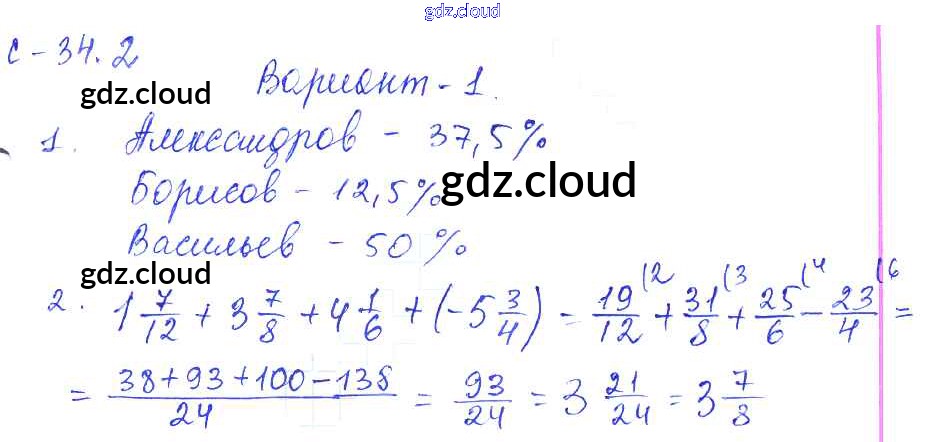 gdz.cloud
С-34.2
gdz.cloud
Вариант-1.
1. Александров - 37,5%
Борисов - 12,5%
gdz.cloud
Васильев - 50%
gdz.cloud
2. 1 7/12 + 3 7/8 + 4 1/6 + (-5 3/4) = 19/12 (2 + 31/8 (3 + 25/6 (4 - 23/4 (6 =
= 38+93+100-138/24 = 93/24 = 3 21/24 = 3 7/8